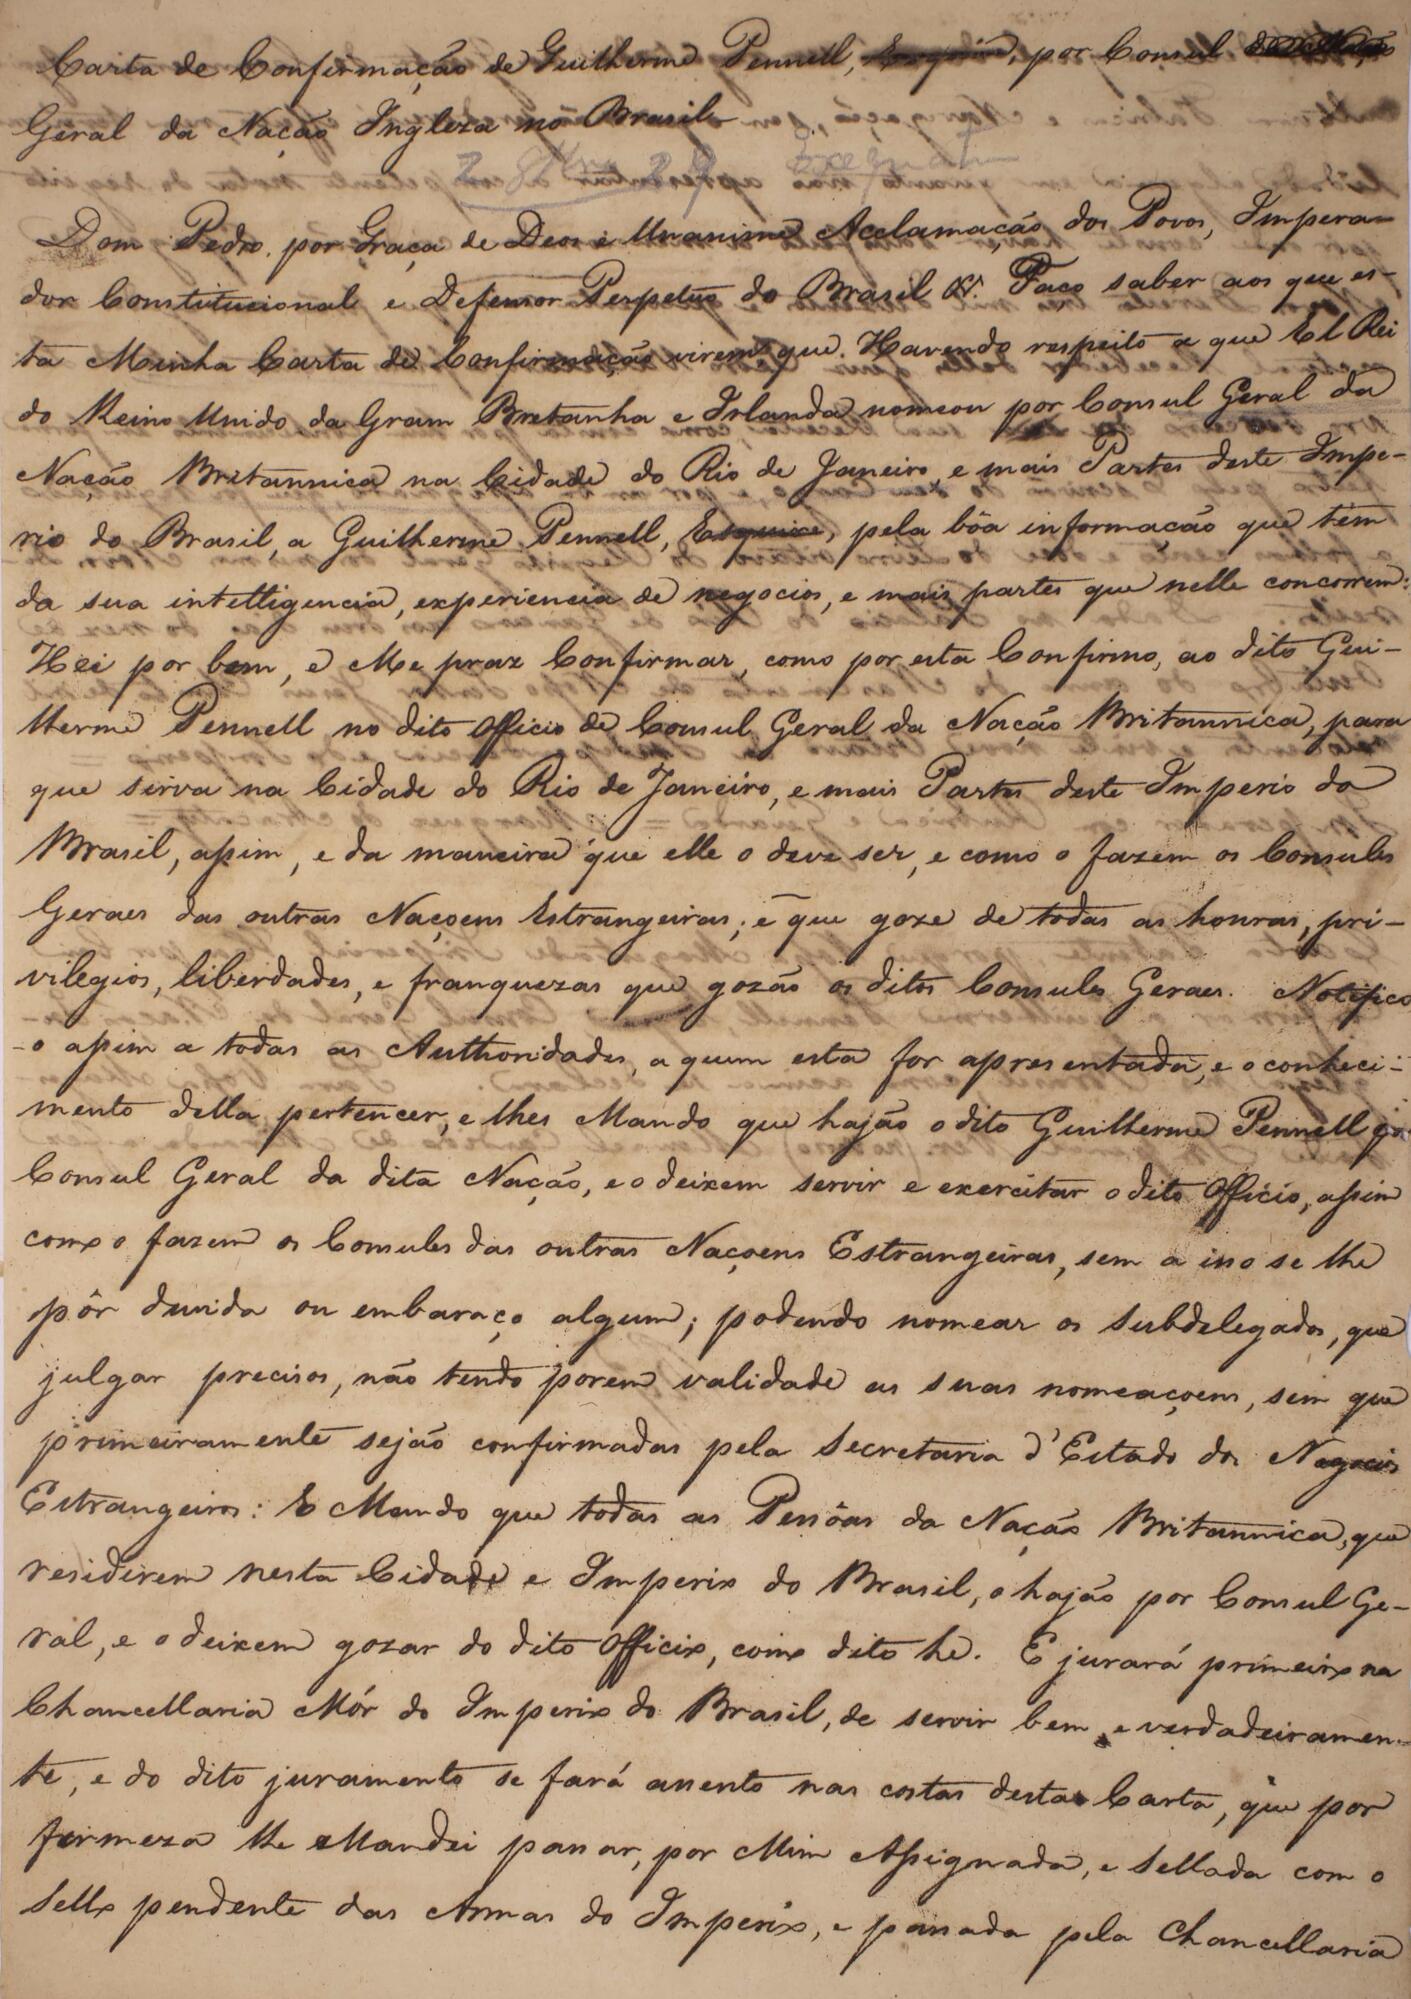 Carta de Confirmação de Guilherme Pennell, Esquire, por Consul
Geral da Nação Ingleza no Brasil
Dom Pedro, por Graça de Deos e Unanime Acclamação dos Povos, Impera-
dor Constitucional e Defensor Perpetuo do Brasil &. Faço saber aos que es-
ta Minha Carta de Confirmação virem, que. Havendo respeito a que El Rei
do Reino Unido da Gram Bretanha e Irlanda nomeou por Consul Geral da
Nação Britannica na Cidade do Rio de Janeiro, e mais Partes deste Impe-
rio do Brasil, a Guilherme Pennell, Esquire, pela bôa informação que têm
da sua intelligencia, experiencia de negocios, e mais partes que nelle concorrem:
Hei por bem, e Me praz Confirmar, como por esta Confirmo, ao dito Gui-
lherme Pennell no dito Officio de Consul Geral da Nação Britannica, para
que sirva na Cidade do Rio de Janeiro, e mais Partes deste Imperio do
Brasil, assim, e da maneira que elle o deve ser, e como o fazem os Consules
Geraes das outras Naçoens Estrangeiras; e que goze de todas as honras, pri-
vilegios, liberdades, e franquezas que gozão os ditos Consules Geraes. Notifico
-o assim a todas as Authoridades, a quem esta for apresentada, e o conheci-
mento della pertencer, e lhes Mando que hajão o dito Guilherme Pennell por
Consul Geral da dita Nação, e o deixem servir e exercitar o dito Officio, assim
como o fazem os Consules das outras Naçoens Estrangeiras, sem a isso se lhe
pôr duvida ou embaraço algum; podendo nomear os Subdelegados, que
julgar precisos, não tendo porem validade as suas nomeaçoens, sem que
primeiramente sejão confirmadas pela Secretaria d'Estado dos Negocios
Estrangeiros: E Mando que todas as Pessôas da Nação Britannica, que
residirem nesta Cidade e Imperio do Brasil, o hajão por Consul Ge-
ral, e o deixem gozar do dito Officio, como dito he. E jurará primeiro na
Chancellaria Mór do Imperio do Brasil, de servir bem e verdadeiramen-
te, e do dito juramento se fará assento nas costas desta Carta, que por
firmeza lhe Mandei passar, por Mim Assignada, e Sellada com o
Sello pendente das Armas do Imperio, e passada pela Chancellaria